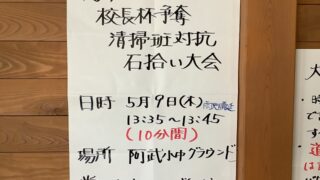 校長杯争奪
清掃班対抗
石拾い大会
日時 5月9日(木)
13:35～13:45
(10分間)
場所 阿武小中グラウンド
大